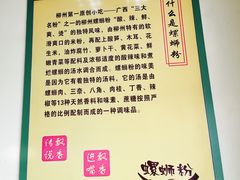 什么是螺蛳粉
柳州第一原创小吃——广西“三大
名粉”之一的柳州螺蛳粉“酸、辣、鲜、
爽、烫”的独特风味，由柳州特有的软
滑爽口的米粉，再配上酸笋、木耳、花
生米、油炸腐竹、萝卜干、黄花菜、鲜
嫩青菜等配料及浓郁适度的酸辣味和煮
烂螺蛳的汤水调合而成。螺蛳粉的味美
是因为它有着独特的汤料，它的汤是由
螺蛳肉、三奈、八角、肉桂、丁香、辣
椒等13种天然香料和味素、蔗糖按照严
格的比例配制而成的一种调味品。
传说香
迟嘴香
螺蛳粉